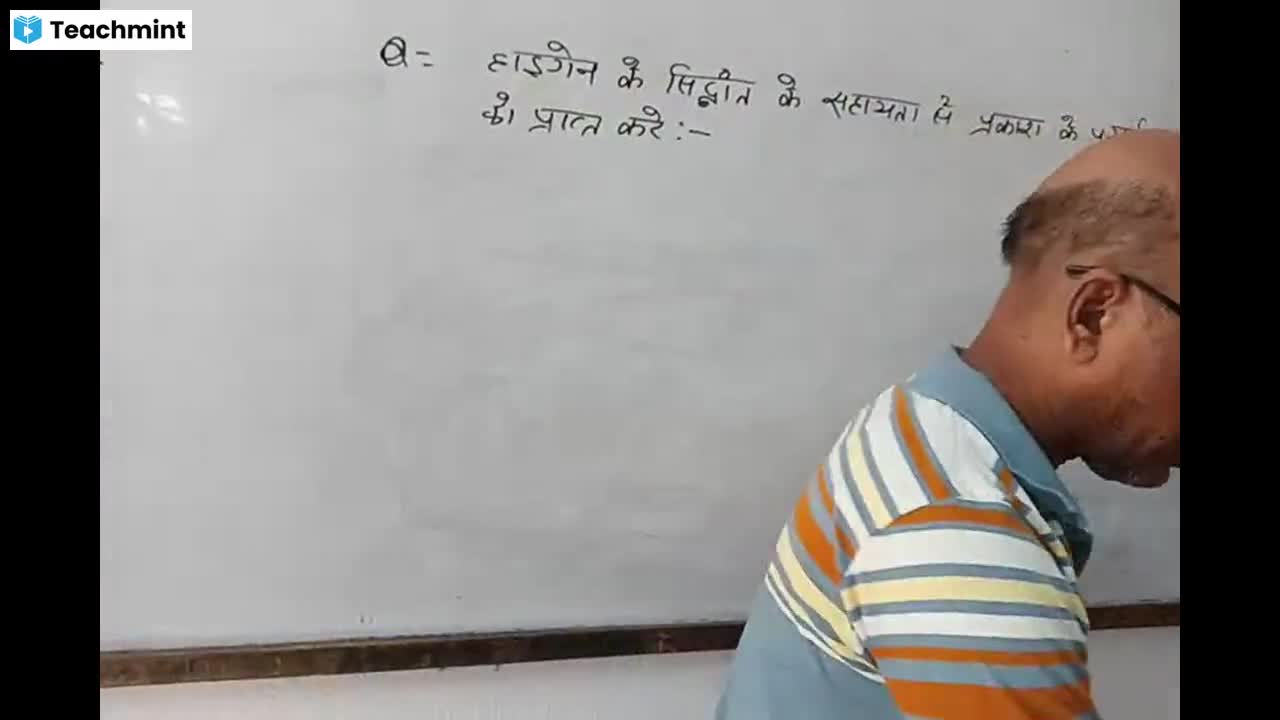 Teachmint
Q= हाइगेन के सिद्धांत के सहायता से प्रकाश के
को प्राप्त करे :-